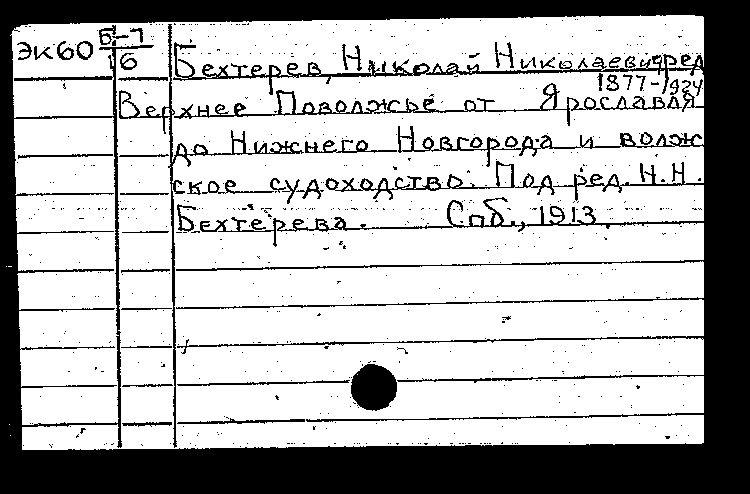 ЭК60 Б-7/16
Бехтерев, Николай Николаевич, ред
1877-1934
Верхнее Поволжье от Ярославля
до Нижнего Новгорода и волж
ское судоходство. Под ред. Н.Н.
Бехтерева. Спб., 1913.